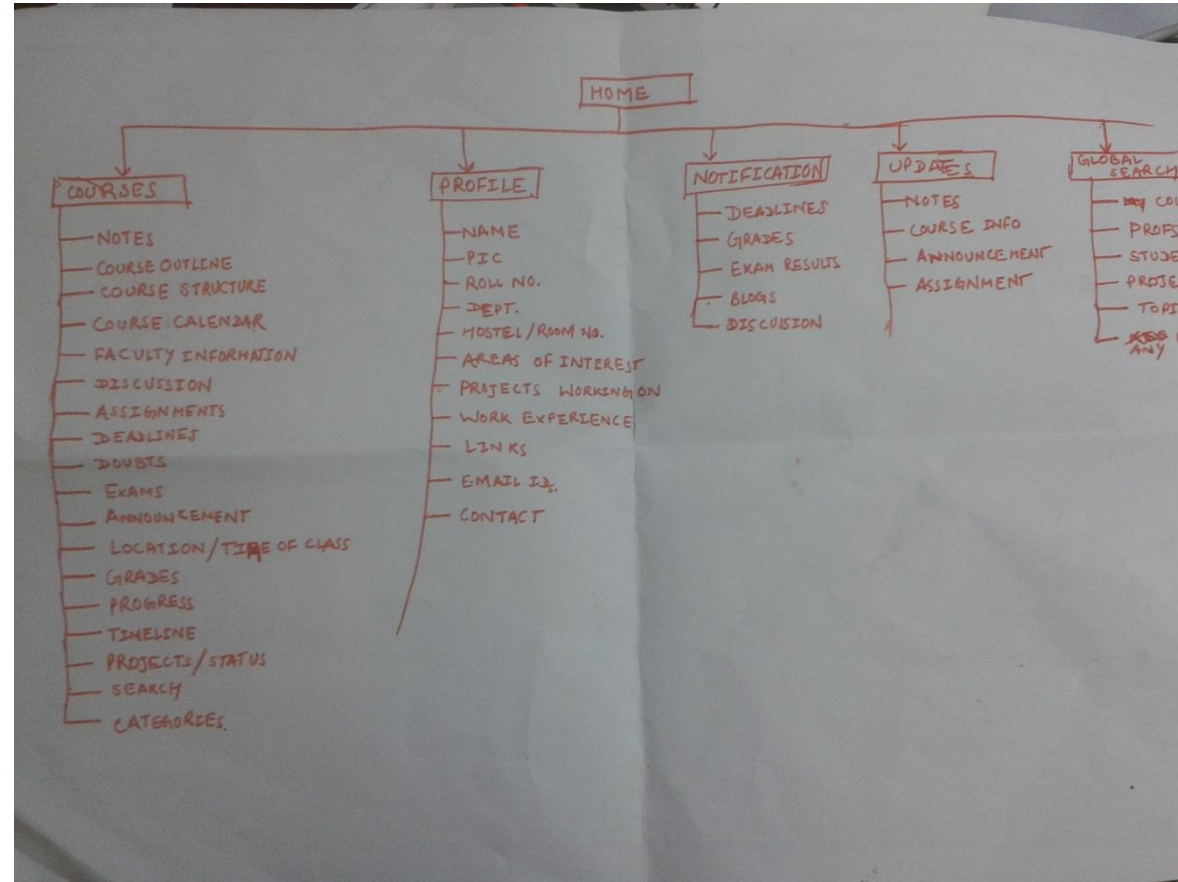 HOME
COURSES
NOTES
COURSE OUTLINE
COURSE STRUCTURE
COURSE CALENDAR
FACULTY INFORMATION
DISCUSSION
ASSIGNMENTS
DEADLINES
DOUBTS
EXAMS
ANNOUNCEMENT
LOCATION/TIME OF CLASS
GRADES
PROGRESS
TIMELINE
PROJECTS/STATUS
SEARCH
CATEGORIES
PROFILE
NAME
PIC
ROLL NO.
DEPT.
HOSTEL/ROOM NO.
AREAS OF INTEREST
PROJECTS WORKING ON
WORK EXPERIENCE
LINKS
EMAIL ID.
CONTACT
NOTIFICATION
DEADLINES
GRADES
EXAM RESULTS
BLOGS
DISCUSSION
UPDATES
NOTES
COURSE INFO
ANNOUNCEMENT
ASSIGNMENT
GLOBAL
SEARCH
COU
PROFS
STUDE
PROJE
TOPI
ANY